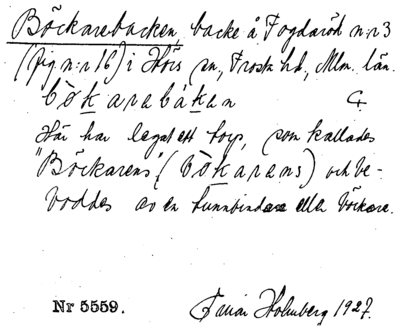 Böckarebacken, backe å Fogdaröd n:r 3
(fig n:r 16) i Hörs sn, Frosta hd, Mlm. län.
bòkarabákan
Här har legat ett torp, som kallades
"Böckarens" (bòkarans) och be-
boddes av en tunnbindare eller böckare.
Nr 5559. Einar Holmberg 1927.